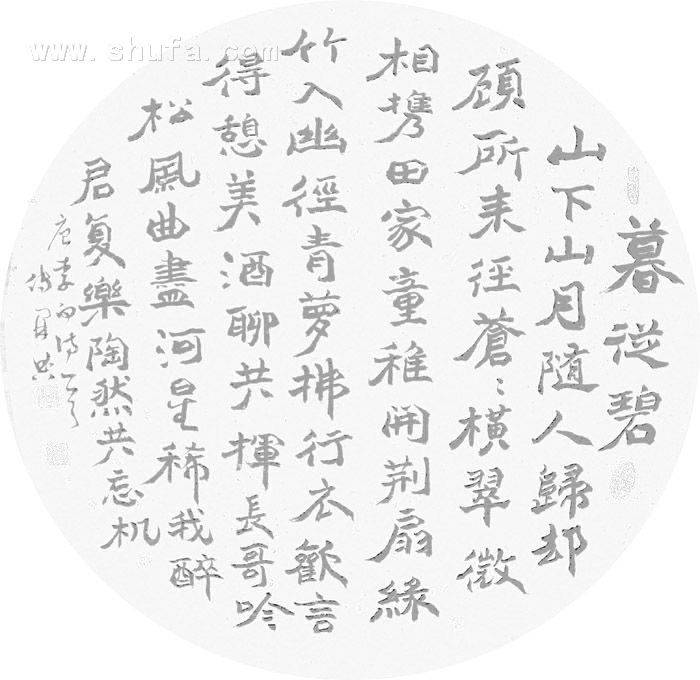 www.shufa.com
暮從碧
山下山月隨人歸却
顧所来径蒼々橫翠微
相携田家童稚開荆扇緣
竹入幽徑青萝拂行衣歡言
得憩美酒聊共揮長哥吟
松風曲盡河星稀我醉
君复樂陶然共忘机
唐李白诗一首